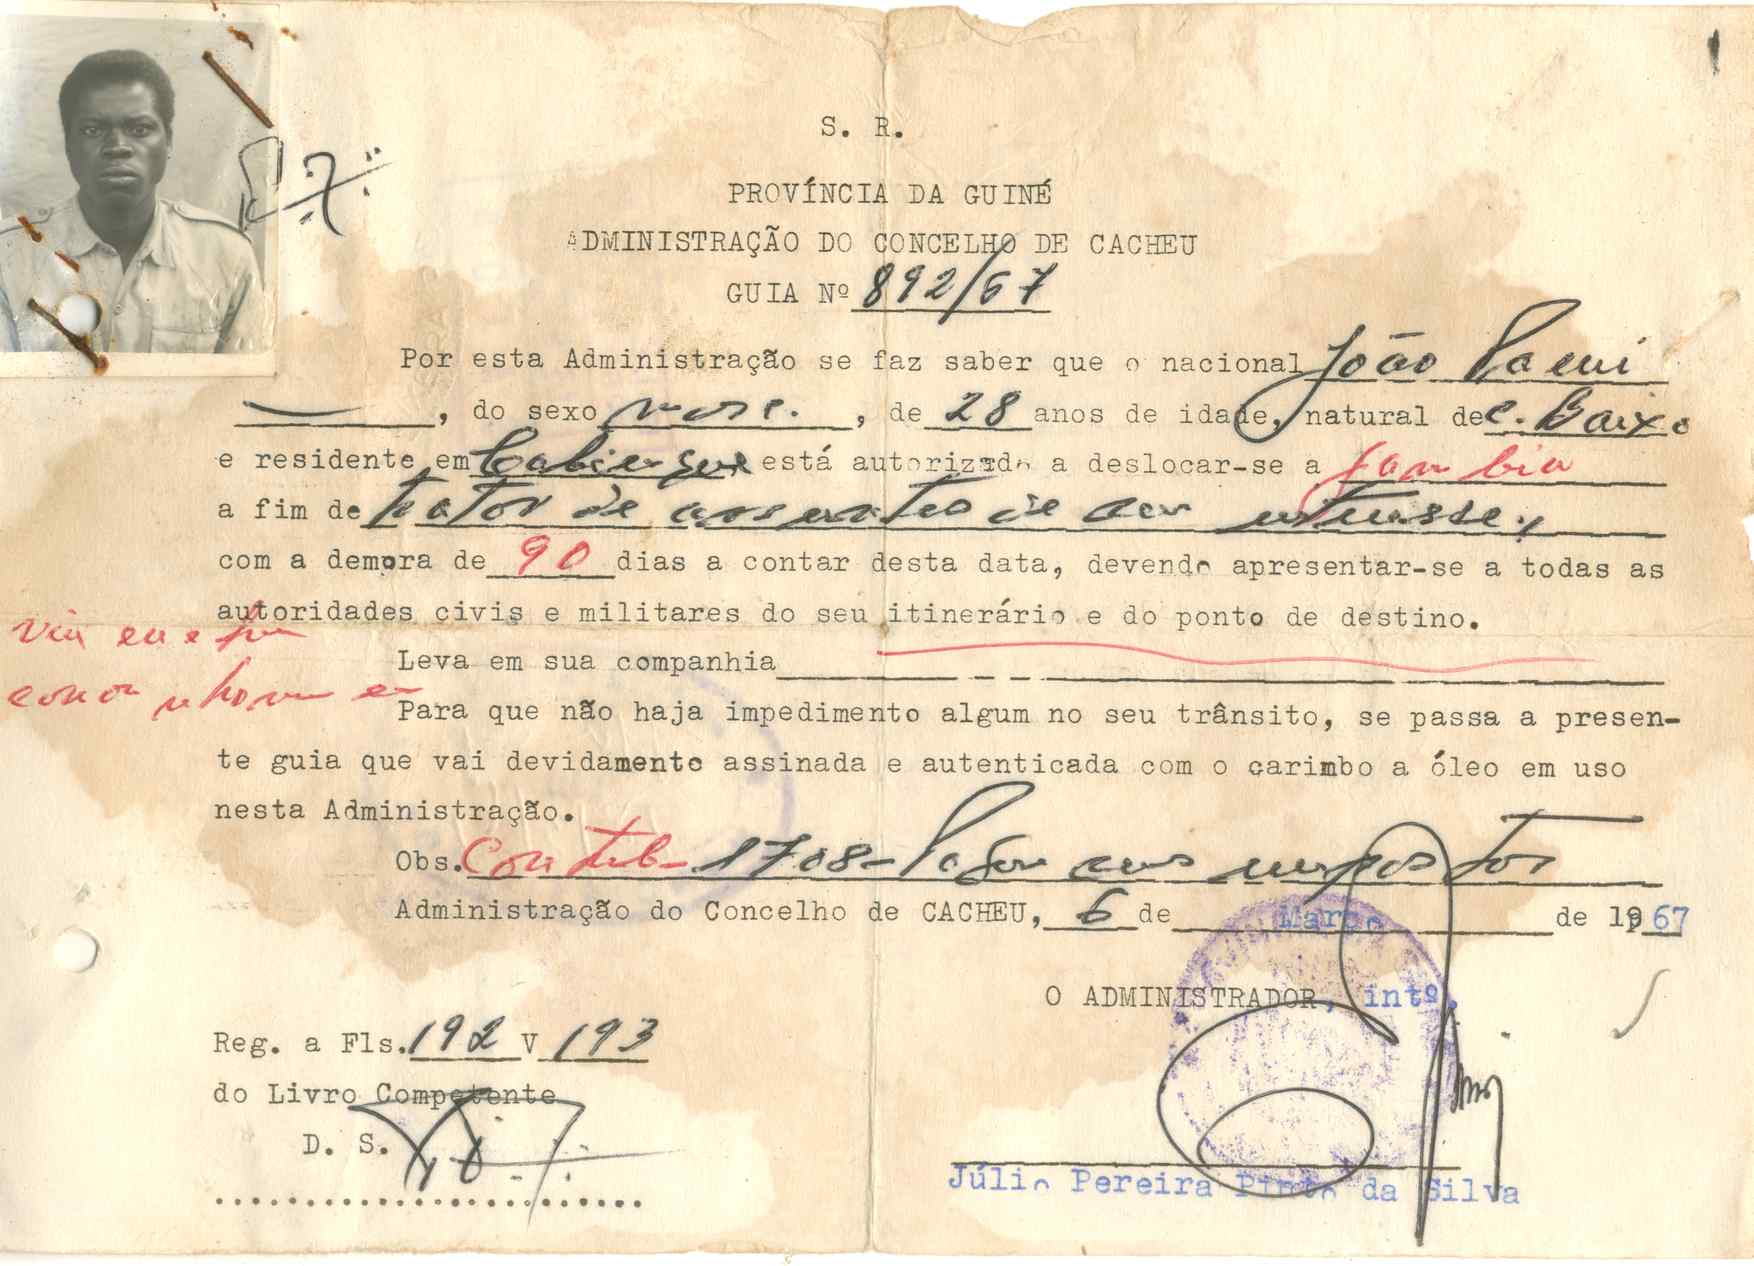 S. R.
PROVÍNCIA DA GUINÉ
ADMINISTRAÇÃO DO CONCELHO DE CACHEU
GUIA Nº 892/67
Por esta Administração se faz saber que o nacional João
, do sexo masc. , de 28 anos de idade, natural de C. Baixo
e residente em está autorizado a deslocar-se a Gambia
a fim de tratar de assuntos de seu interesse,
com a demora de 90 dias a contar desta data, devendo apresentar-se a todas as
autoridades civis e militares do seu itinerário e do ponto de destino.
Leva em sua companhia
Para que não haja impedimento algum no seu trânsito, se passa a presen-
te guia que vai devidamente assinada e autenticada com o carimbo a óleo em uso
nesta Administração.
Obs. Contrib- 1708- Pagou impostos
Administração do Concelho de CACHEU, 6 de Março de 1967
O ADMINISTRADOR, intº,
Reg. a Fls. 192 V 193
do Livro Competente
D. S.
Júlio Pereira Pinto da Silva